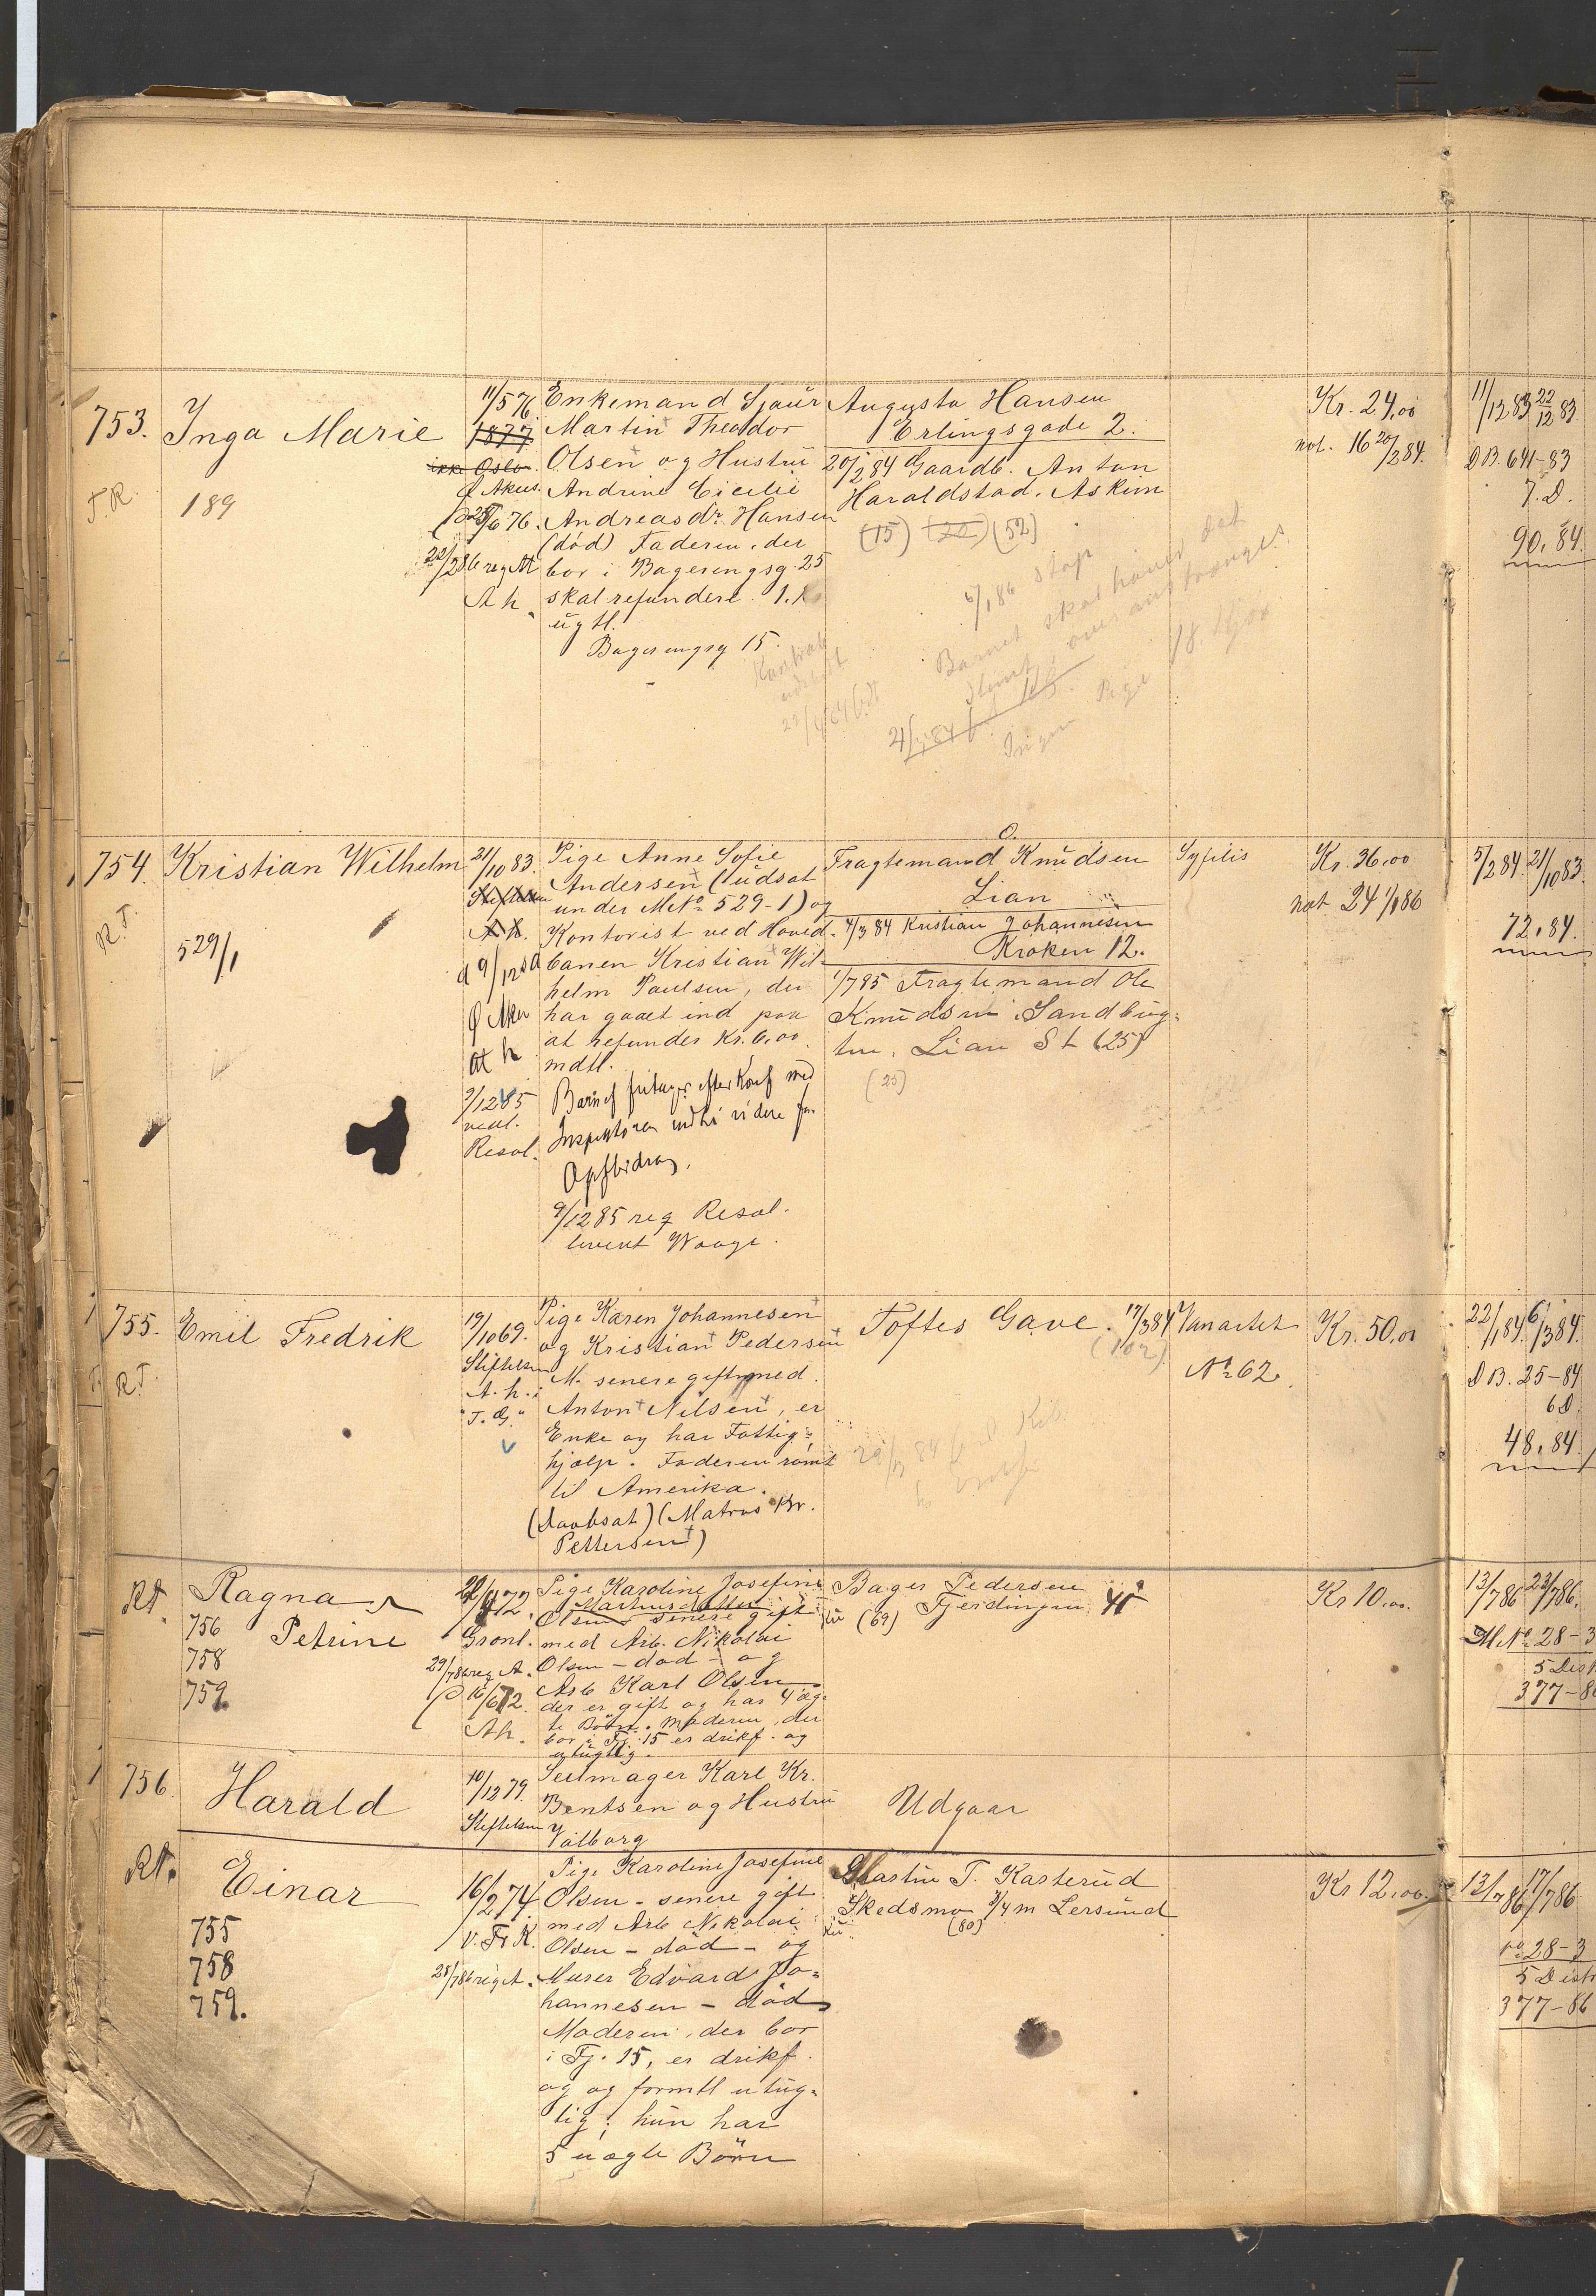 753.
Inga Marie
189
T. R.
11/5 76.
1877
ikke Oslo.
Ø Akers.
22/2 86 reg At
A h.
Enkemand Sjauer
Martin Theodor
Olsen og Hustru
Andrine Cicelie
Andreasdr. Hansen
(död) Faderen, der
bor i Bagerengsg. 25
skal refundere 1. K
ugtl.
Bagerengsg 15.
Augusta Hansen
Erlingsgade 2.
20/2 84 Gaardb. Anton
Haraldstad. Askim
(15) (22) (52)
6/1 86 Stop
Barnet skal haves det
Ingen Pige
Kr. 24,00
not. 16 20/2 84.
11/12 83 22/12 83.
D B. 641-83
7. D.
90, 84.
754.
Kristian Wilhelm
R. T.
529/1
21/10 83.
A. h.
Ø Aker
At h
9/12 85
vedl.
Resol.
Pige Anne Sofie
Andersen (udsat
under M No 529-1) og
Kontorist ved Hoved-
banen Kristian Wil-
helm Paulsen, der
har gaaet ind paa
at refunder Kr. 6,00
mdtl.
Barnet fritages efter Konf med
Inspektøren indtil videre for
Opfbidrag.
9/12 85 reg Resol.
levert Waage.
O.
Fragtemand Knudsen
Lian
4/3 84 Kristian Johannesen
Kroken 12.
1/7 85 Fragtemand Ole
Knudsen Sandbug-
ten, Lian St (25)
(25)
Syfilis
Kr. 36,00
not 24 1/1 86
5/2 84. 21/10 83.
72, 84.
755.
Emil Fredrik
R. T.
19/10 69.
Stiftelsen
A. h. i
"T. G."
Pige Karen Johannesen
og Kristian Pedersen
M. senere gift med
Anton Nilsen, er
Enke og har Fattig-
hjælp. Faderen rømt
til Amerika.
(daabsat) (Matros Kr.
Pettersen)
Toftes Gave. 17/3 84
(102)
Vanartet
No 62.
Kr. 50,00
22/1 84. 6/3 84.
D B. 25-84
6 D.
48, 84.
Rt.
Ragna
Petrine
756
758
759
Grønl.
29/7 86 reg A.
16/6 72.
A h.
Pige Karoline Josefine
Olsen senere gift
med Arb. Nikolai
Olsen - død - og
Arb Karl Olsen
der er gift og har 4 æg-
te Børn. Moderen, der
bor i Fj. 15 er drikf. og
utugtig.
Bager Pedersen
Fjerdingen 41
(69)
Kr 10,00.
13/7 86 23/7 86.
M No 28-3
5 Dist
377-8
756
Harald
10/12 79.
Stiftelsen
Seilmager Karl Kr.
Berntsen og Hustru
Valborg
Udgaar
Rt.
Einar
755
758
759.
16/2 74.
V. Fr K.
28/7 86 reg A.
Pige Karoline Josefine
Olsen - senere gift
med Arb Nikolai
Olsen - død - og
Murer Edvard Jo-
hannesen - død
Moderen, der bor
i Fj. 15, er drikf.
og og formtl utug-
tig; hun har
5 uægte Børn
Martin T. Kasterud
Skedsmo 3/4 m Lersund
(80)
Kr 12,00.
13/7 86 17/7 86
No 28-3
5 Distr
377-86